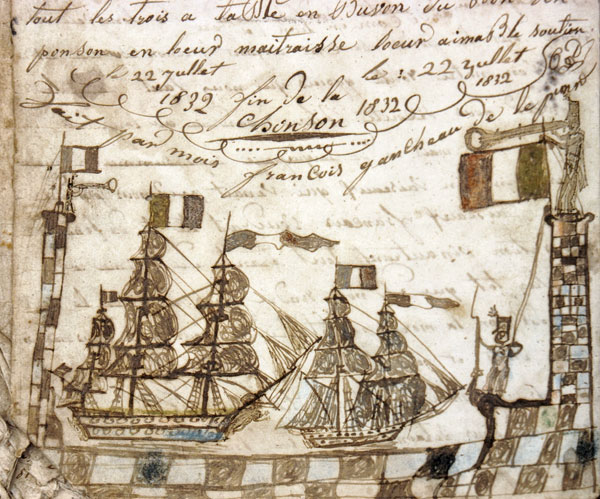 tout les trois a table en Buson du bon vin
ponson en loeur maitraisse loeur aimable soutien
le 22 jullet le : 22 jullet
1832 fin de la 1832 1832
Chonson
fait par mois francois gautheau de le